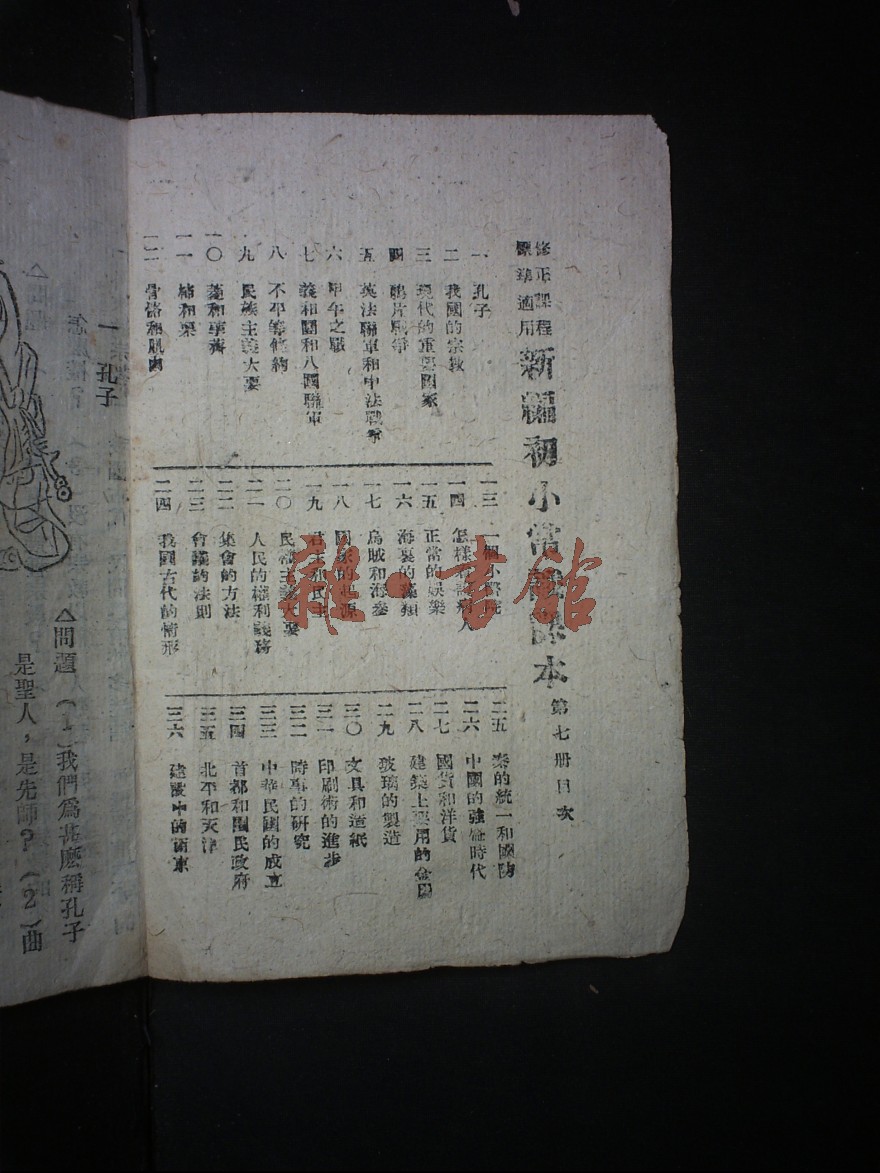 修正課程
標準適用
新編初小常識課本
第七册目次
一 孔子
二 我國的宗教
三 現代的重要國家
四 鴉片戰爭
五 英法聯軍和中法戰爭
六 甲午之戰
七 義和團和八國聯軍
八 不平等條約
九 民族主義大要
一〇 菱和荸薺
一一 柿和栗
一二 骨骼和肌肉
一三 一個小
一四 怎樣
一五 正常的娛樂
一六 海裏的藻類
一七 烏賊和海參
一八 國家的起源
一九 君主和民主
二〇 民權主義大要
二一 人民的權利義務
二二 集會的方法
二三 會議的法則
二四 我國古代的情形
二五 秦的統一和國防
二六 中國的強盛時代
二七 國貨和洋貨
二八 建築上要用的金屬
二九 玻璃的製造
三〇 文具和造紙
三一 印刷術的進步
三二 時事的研究
三三 中華民國的成立
三四 首都和國民政府
三五 北平和天津
三六 建設中的
雜·書館
一 孔子
△問題 (1)我們爲甚麽稱孔子
是聖人，是先師？(2)曲